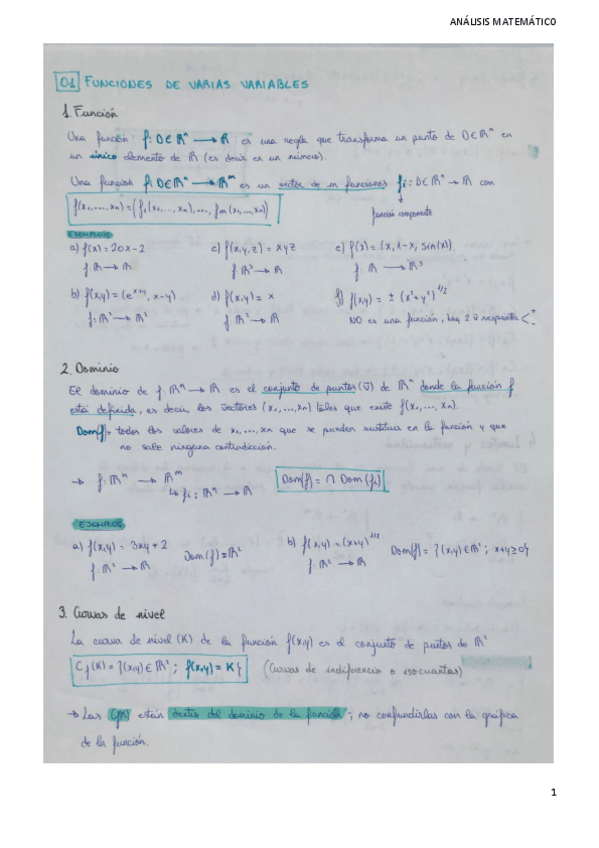 ANÁLISIS MATEMÁTICO
01 FUNCIONES DE VARIAS VARIABLES
1. Función
Una función f: D∈ℝⁿ → ℝ es una regla que transforma un punto de D∈ℝⁿ en
un único elemento de ℝ (es decir es un número).
Una función f: D∈ℝⁿ → ℝᵐ es un vector de m funciones fi: D∈ℝⁿ → ℝ con
f(x₁,...,xn) = (f₁(x₁,...,xn),..., fm(x₁,...,xn))
función componente
EJEMPLOS
a) f(x) = 20x-2 c) f(x,y,z) = xyz e) f(x) = (x, 1-x, sin(x))
f: ℝ → ℝ f: ℝ³ → ℝ f: ℝ → ℝ³
b) f(x,y) = (e^(x+y), x-y) d) f(x,y) = x f) f(x,y) = ± (x²+y²)^(1/2)
f: ℝ² → ℝ² f: ℝ² → ℝ NO es una función, hay 2 respuestas < + -
2. Dominio
El dominio de f: ℝⁿ → ℝ es el conjunto de puntos (v̄) de ℝⁿ donde la función f
está definida, es decir, los vectores (x₁,...,xn) tales que existe f(x₁,..., xn).
Dom(f) = todos los valores de x₁,...,xn que se pueden sustituir en la función y que
no sale ninguna contradicción.
→ f: ℝⁿ → ℝᵐ
↳ fi: ℝⁿ → ℝ Dom(f) = ∩ Dom(fi)
EJEMPLOS
a) f(x,y) = 3xy + 2 Dom(f) = ℝ² b) f(x,y) = (x+y)^(1/2) Dom(f) = {(x,y)∈ℝ²; x+y≥0}
f: ℝ² → ℝ f: ℝ² → ℝ
3. Curvas de nivel
La curva de nivel (K) de la función f(x,y) es el conjunto de puntos de ℝ²
Cf(K) = {(x,y)∈ℝ²; f(x,y) = K} (Curvas de indiferencia o isocuantas)
→ Las están dentro del dominio de la función; no confundirlas con la gráfica
de la función.
1